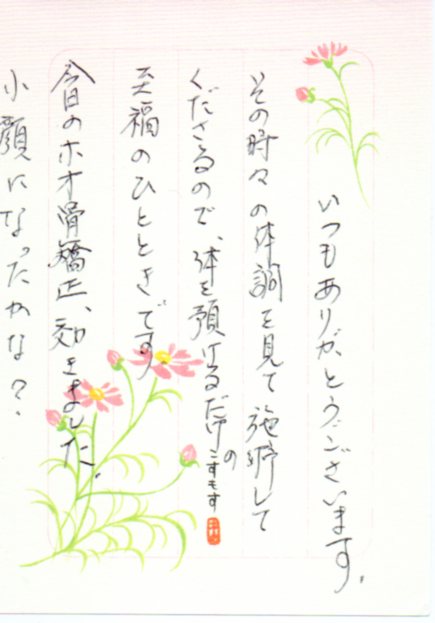 いつもありがとうございます。
その時々の体調を見て施術して
くださるので、体を預けるだけの
至福のひとときです
今日のホオ骨矯正、効きました。
小顔になったかな？
こすもす